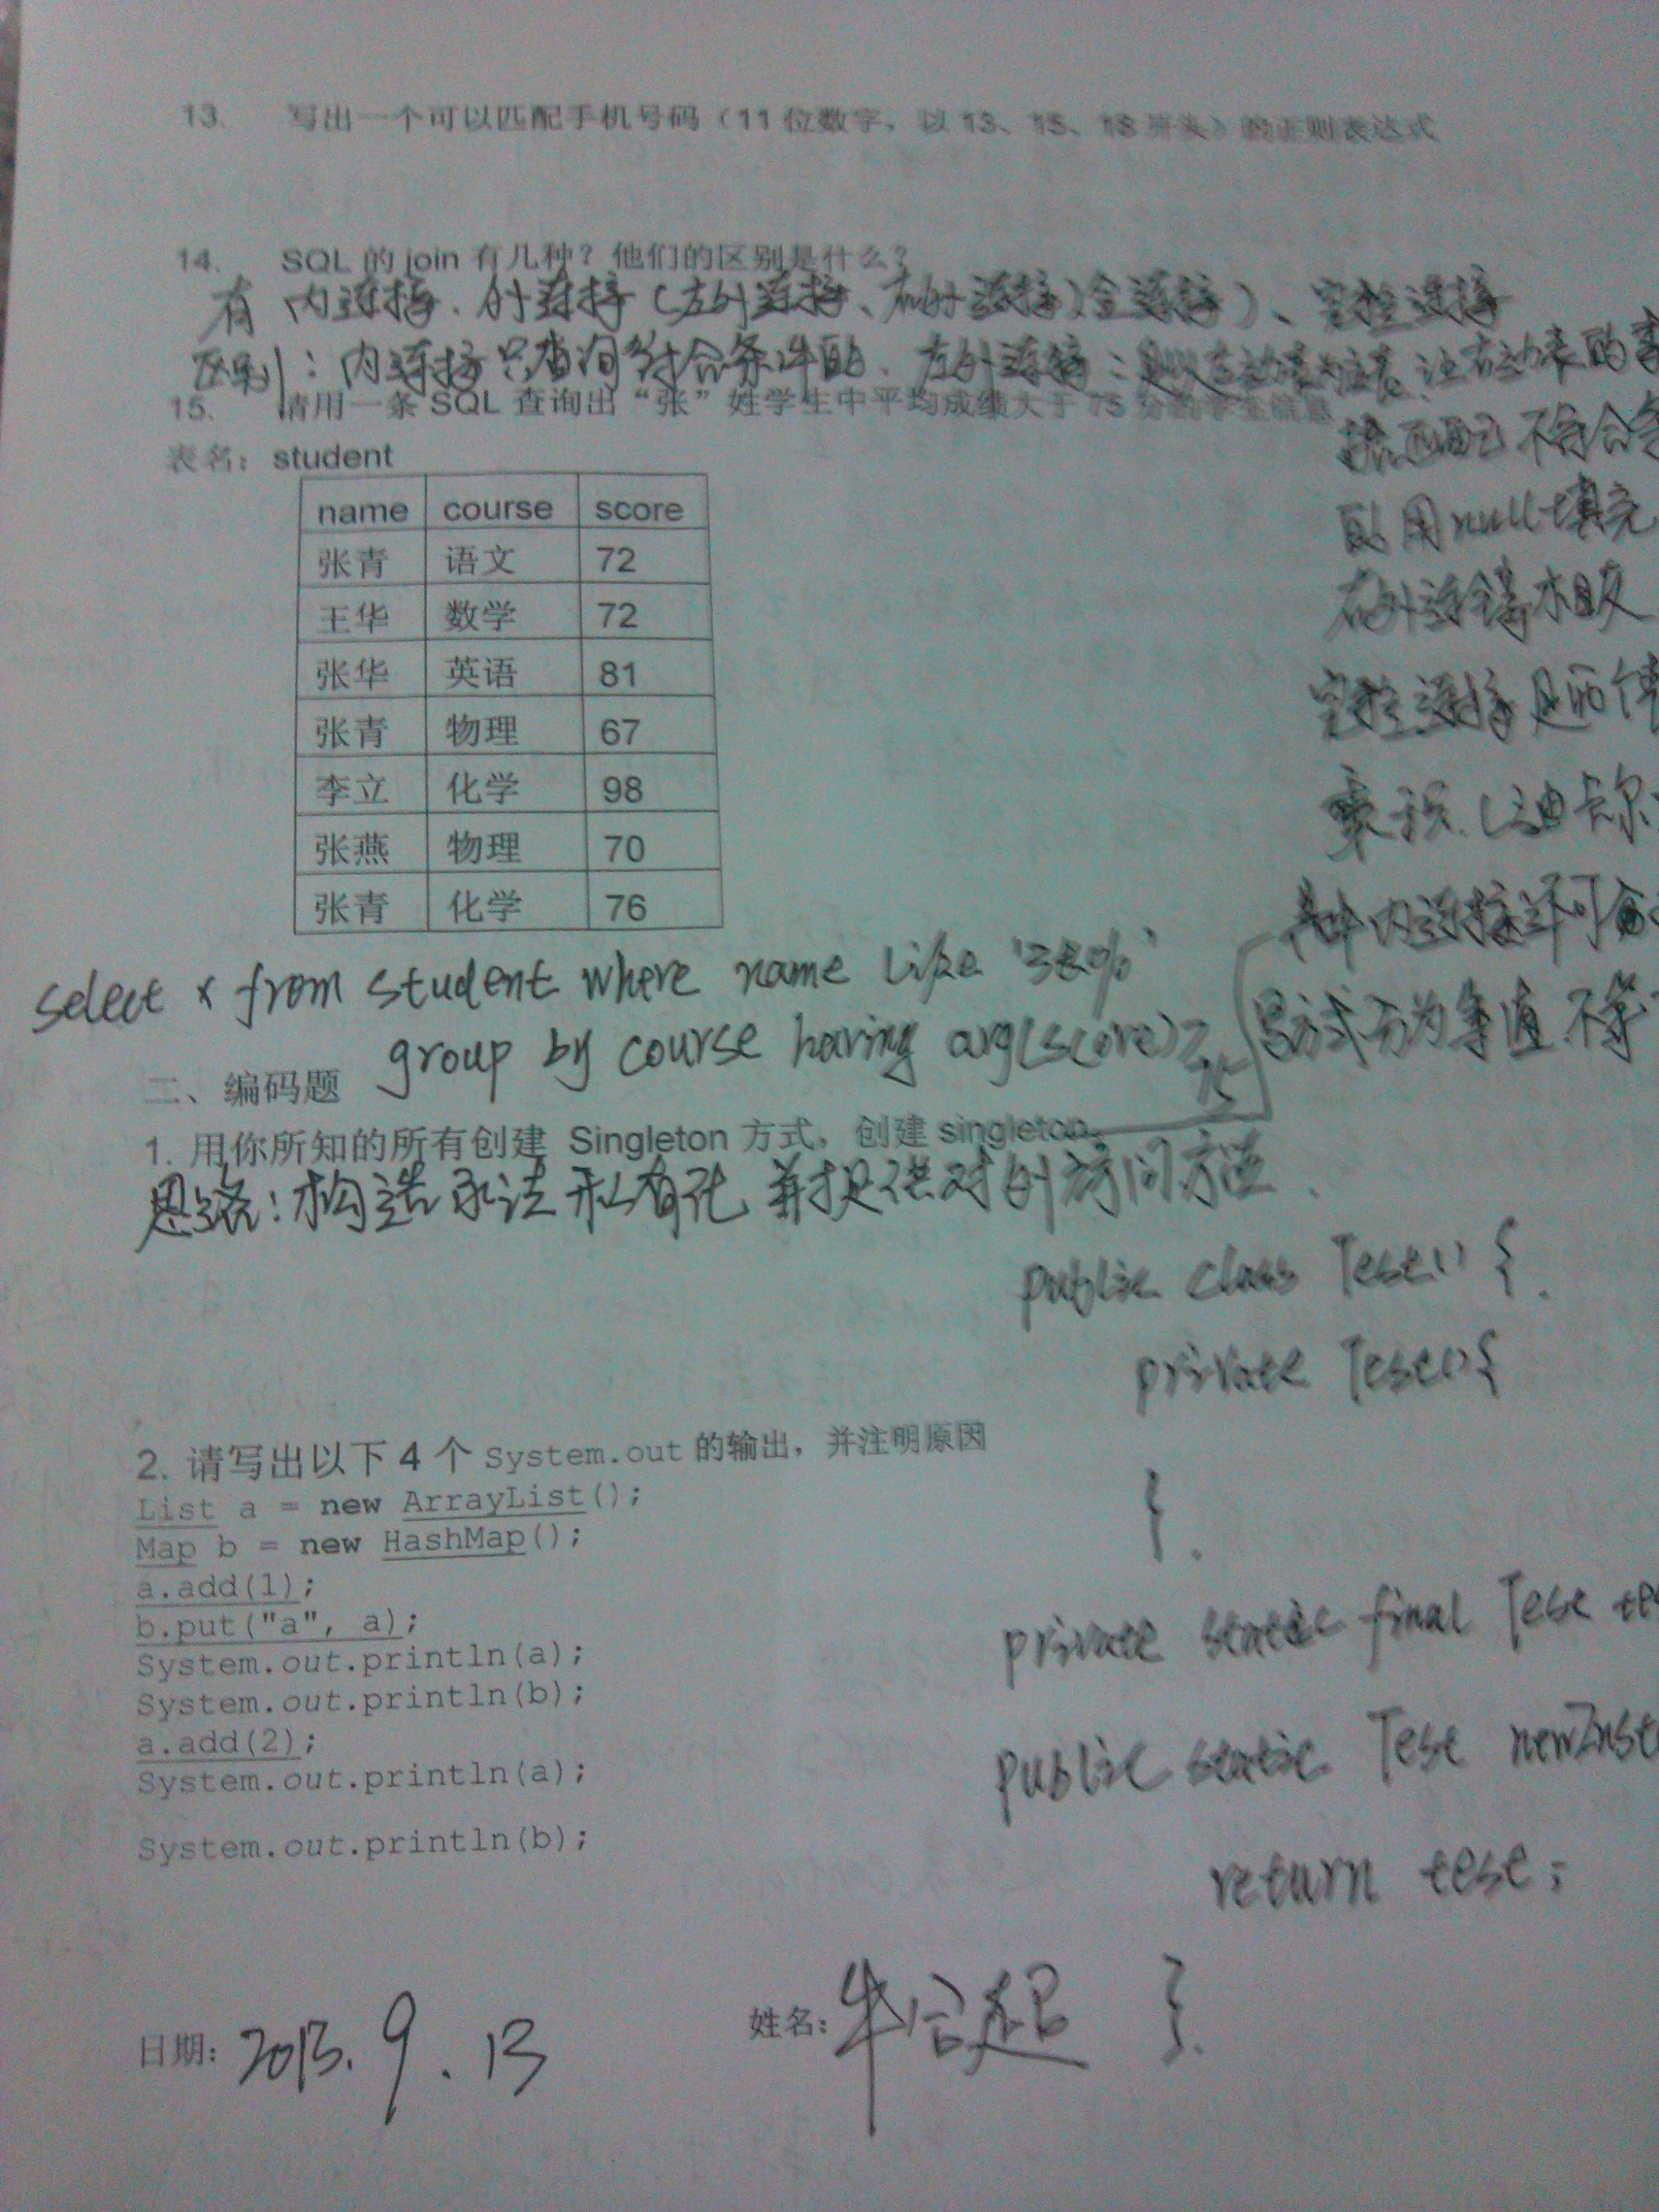 13. 写出一个可以匹配手机号码（11 位数字，以 13、15、18 开头）的正则表达式
14. SQL 的 join 有几种？他们的区别是什么？
有 内连接、外连接（左外连接、右外连接、全连接）、完整连接
区别：内连接只查询符合条件的、左外连接：是以左边表为主表、让右边表的
不符合
的用null填充
右外连接相反
完整连接是两个
乘积、(迪卡尔
其中内连接还可
方式分为等值、不等
15. 请用一条 SQL 查询出 “张” 姓学生中平均成绩大于 75 分的学生信息
表名：student
name course score
张青 语文 72
王华 数学 72
张华 英语 81
张青 物理 67
李立 化学 98
张燕 物理 70
张青 化学 76
select * from student where name like '张%'
group by course having avg(score)>75
二、编码题
1. 用你所知的所有创建 Singleton 方式，创建 singleton。
思路：构造方法私有化 并提供对外访问方法.
public class Test() {
private Test() {
}
private static final Test
public static Test
return test;
}
2. 请写出以下 4 个 System.out 的输出，并注明原因
List a = new ArrayList();
Map b = new HashMap();
a.add(1);
b.put("a", a);
System.out.println(a);
System.out.println(b);
a.add(2);
System.out.println(a);
System.out.println(b);
日期：2013.9.13 姓名：